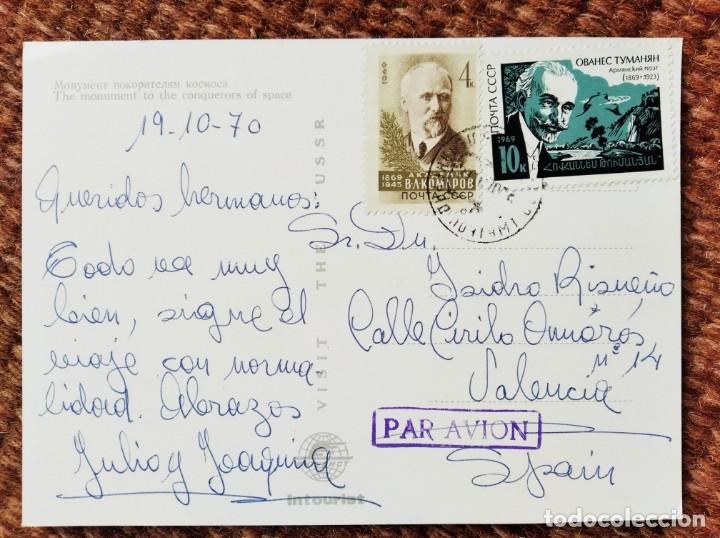 Монумент покорителям космоса
The monument to the conquerors of space
19-10-70
Queridos hermanos:
Todo va muy
bien, sigue el
viaje con norma-
lidad. Abrazos
Julio y Joaquina
VISIT THE USSR
Intourist
1969
4к.
АКАДЕМИК
1869
1945
В.Л.КОМАРОВ
ПОЧТА СССР
ПОЧТА СССР
ОВАНЕС ТУМАНЯН
Армянский поэт
(1869-1923)
1969
10к
ՀՈՎՀԱՆՆԵՍ ԹՈՒՄԱՆՅԱՆ
Sr. Dn.
Isidro Risueño
Calle Cirilo Amorós
nº 14
Valencia
PAR AVION
Spain
todocoleccion.net